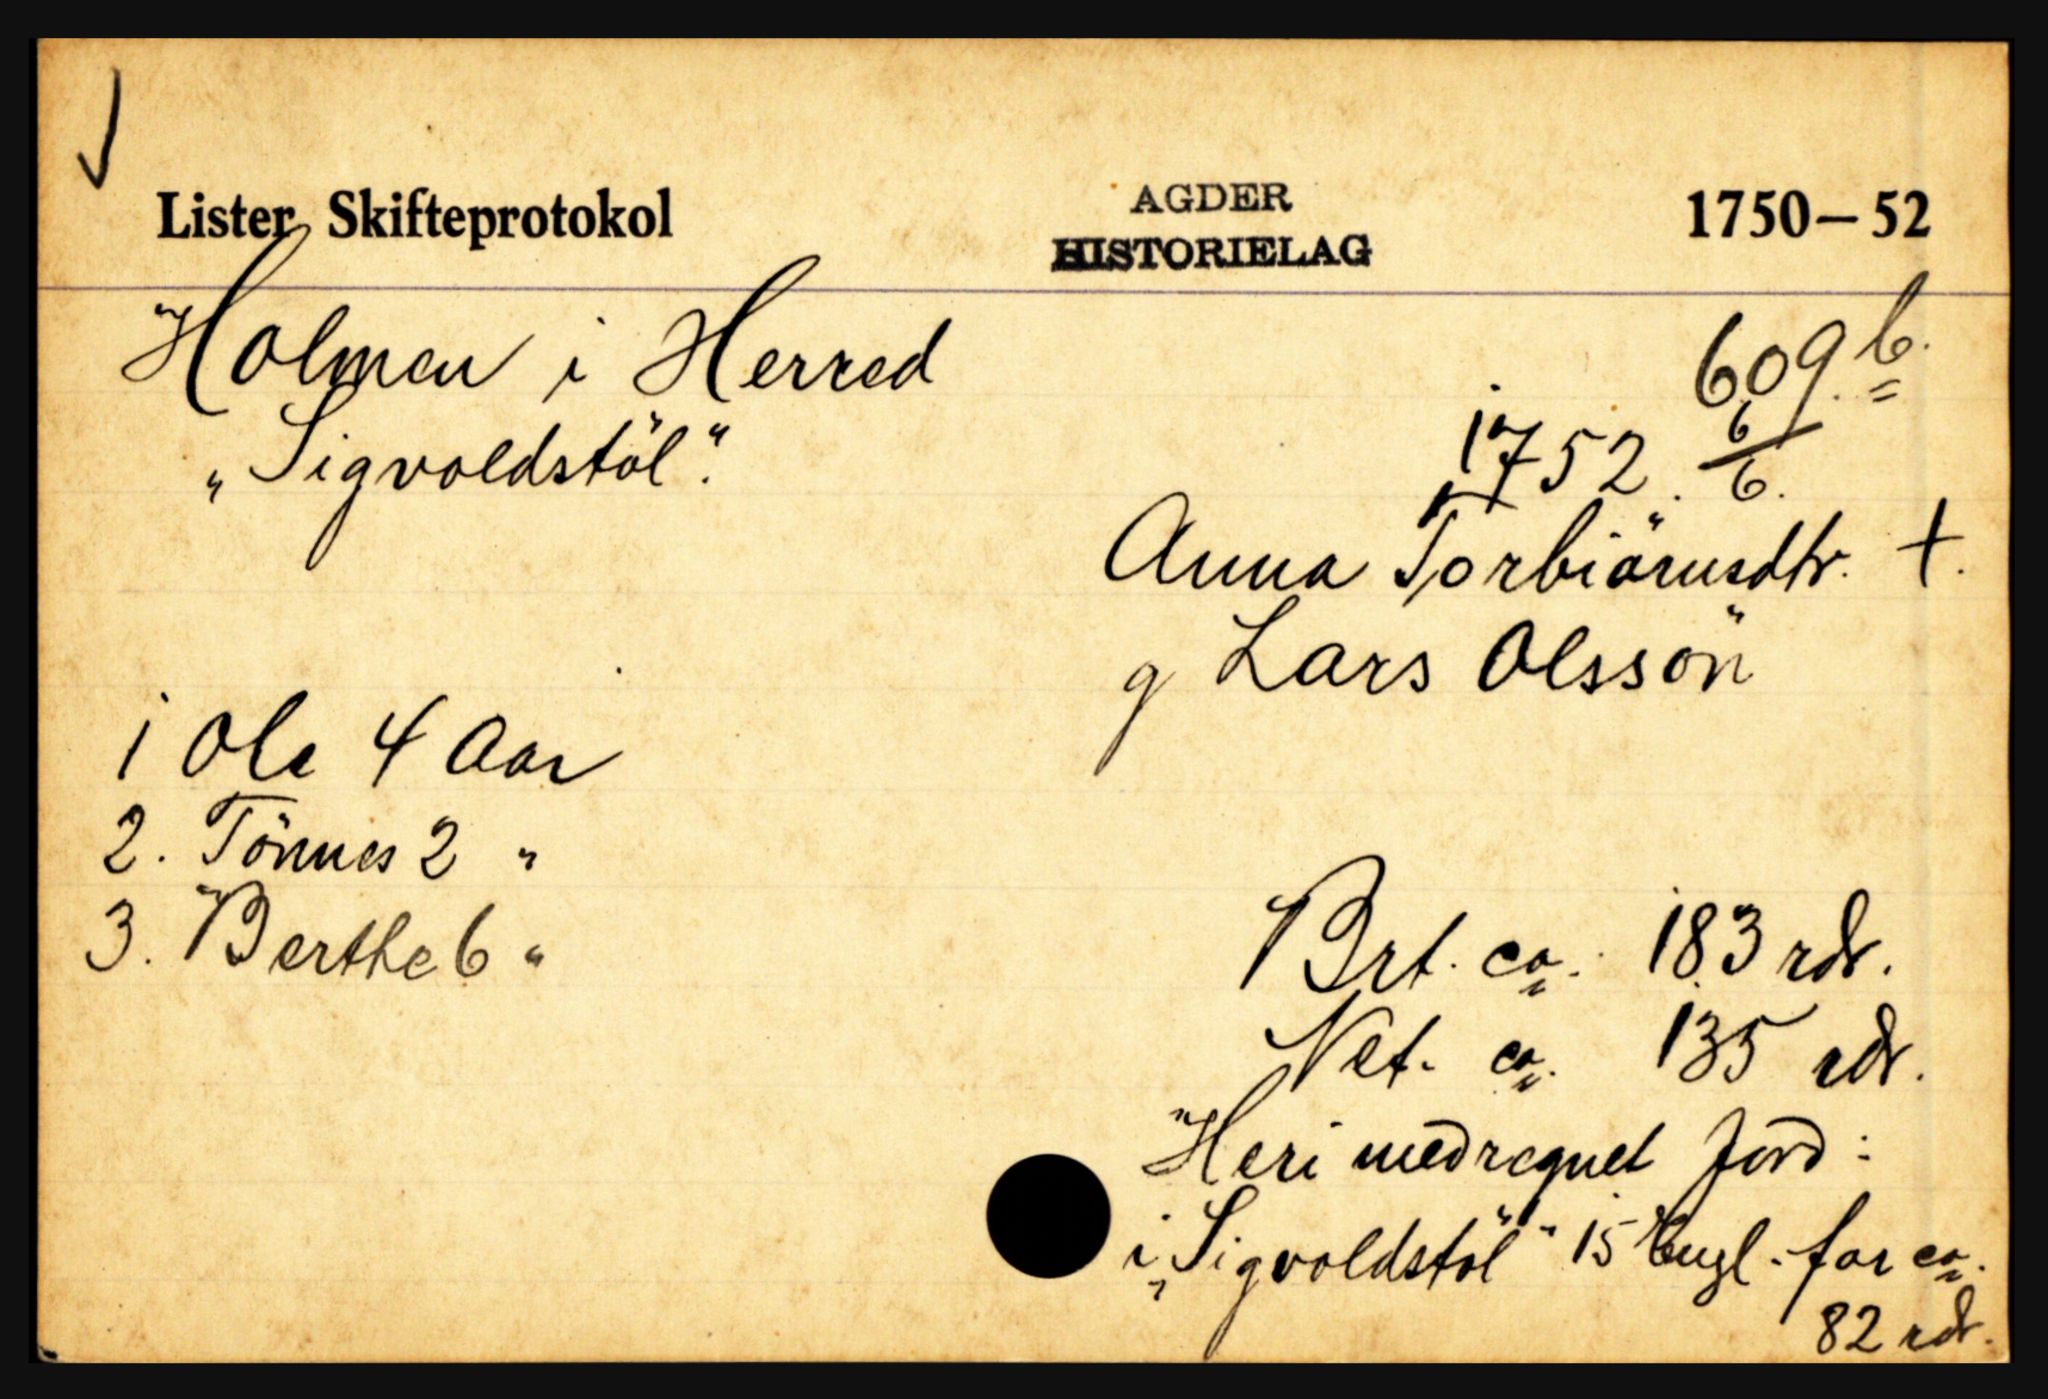 Lister Skifteprotokol
AGDER
HISTORIELAG
1750–52
Holmen i Herred
609 b.
„Sigvoldstöl".
1752. 6/6.
Anna Torbiörnsdtr. +.
g Lars Olssön
1 Ole 4 Aar
2. Tönnes 2 "
3. Berthe 6 "
Brt. ca. 183 rdr.
Net. ca. 135 rdr.
Heri medregnet Jord:
i „Sigvoldstöl" 15 Engl. for ca.
82 rdr.